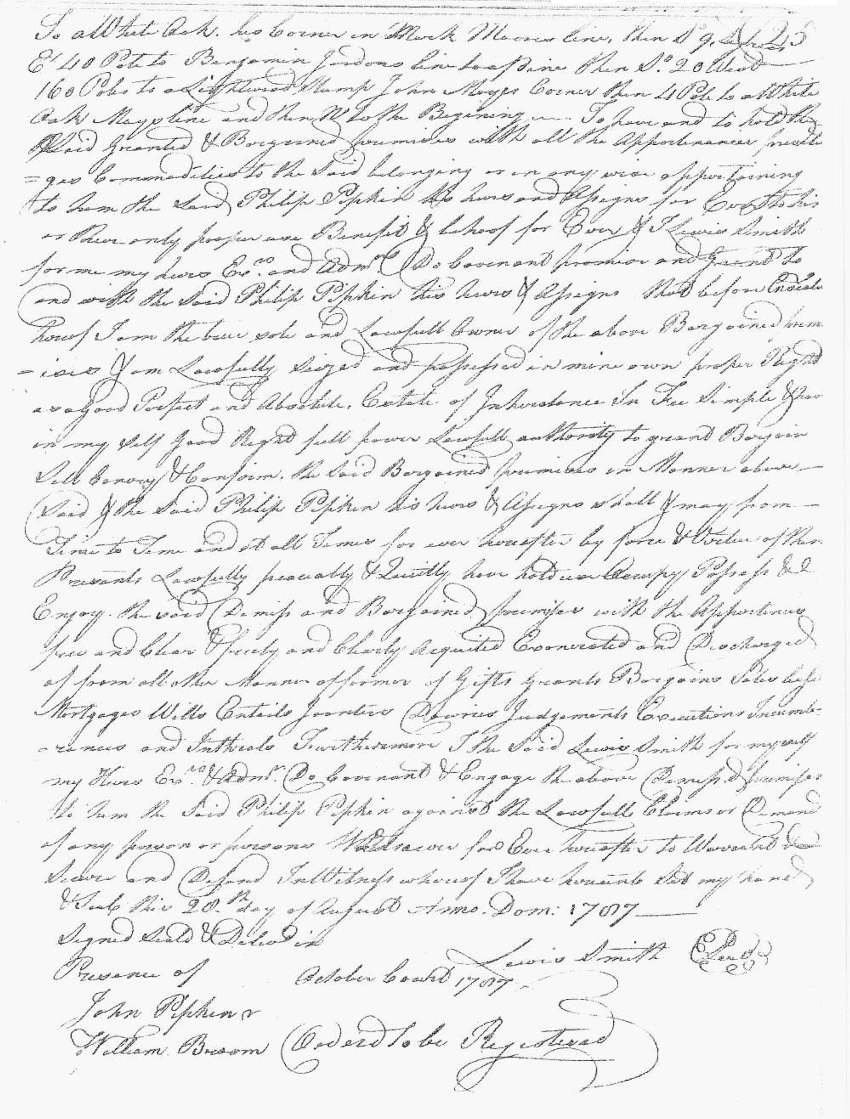 To a White Oak his Corner in Mark Moores line, then So 9
Et 40 Pole to Benjamin Jordons line to a pine then So 20 West
160 Poles to a Lightwood Stump John Mayps Corner then 4 Pole to a White
Oak Mayps line and then Wt to the Begining To have and to hold the
Said Granted & Bargained premises with all the Appertenances privele
=ges Commodities to the Said belonging or in any wise appertaining
to him the Said Philip Pipkin his heirs and Assigns for Ever to his
or their only proper use Benefit & behoof for Ever & I Lewis Smith
for me my heirs Exrs and Admrs Do Covenant promise and Grant to
and with the Said Philip Pipkin his heirs & Assigns that before Enseale
hereof I am the true sole and Lawfull Owner of the above Bargained prem
=ises & am Lawfully Seized and possessed in mine own proper Right
as a Good Perfect and Absolute, Estate of Inheritance In Fee Simple & hav
in my self Good Right full power Lawfull authority to grant Bargain
Sell Convey & Confirm the Said Bargained premises in Manner above
Said & the Said Philip Pipkin his heirs & Assigns shall & may from
Time to Time and at all Times for ever hereafter by force & Virtue of these
Presents Lawfully peaceably & Quietly have hold use Occupy Possess &
Enjoy the said Demiss and Bargained premises with the Appertenes
free and Clear & freely and Clearly Acquited Exonerated and Discharged
of from all other Manner of former of Gifts Grants Bargains Sales
Mortgages Wills Entails Joenters Dowries Judgements Executions Incumb=
=rances and Inthrals Furthermore I the Said Lewis Smith for myself
my Heirs Exrs & Admrs Do Covenant & Engage the above Demisd premises
to him the Said Philip Pipkin against the Lawfull Claims or Demand
of any person or persons Whatsoever for Ever hereafter to Warrant
Secure and Defend In Witness whereof I have hereunto Set my hand
& Seal this 28th day of August Anno. Dom: 1787
Signed Seald & Delivd in
Lewis Smith Seal
Presence of October Court 1787
John Pipkin
William Broom Ordered to be Registered